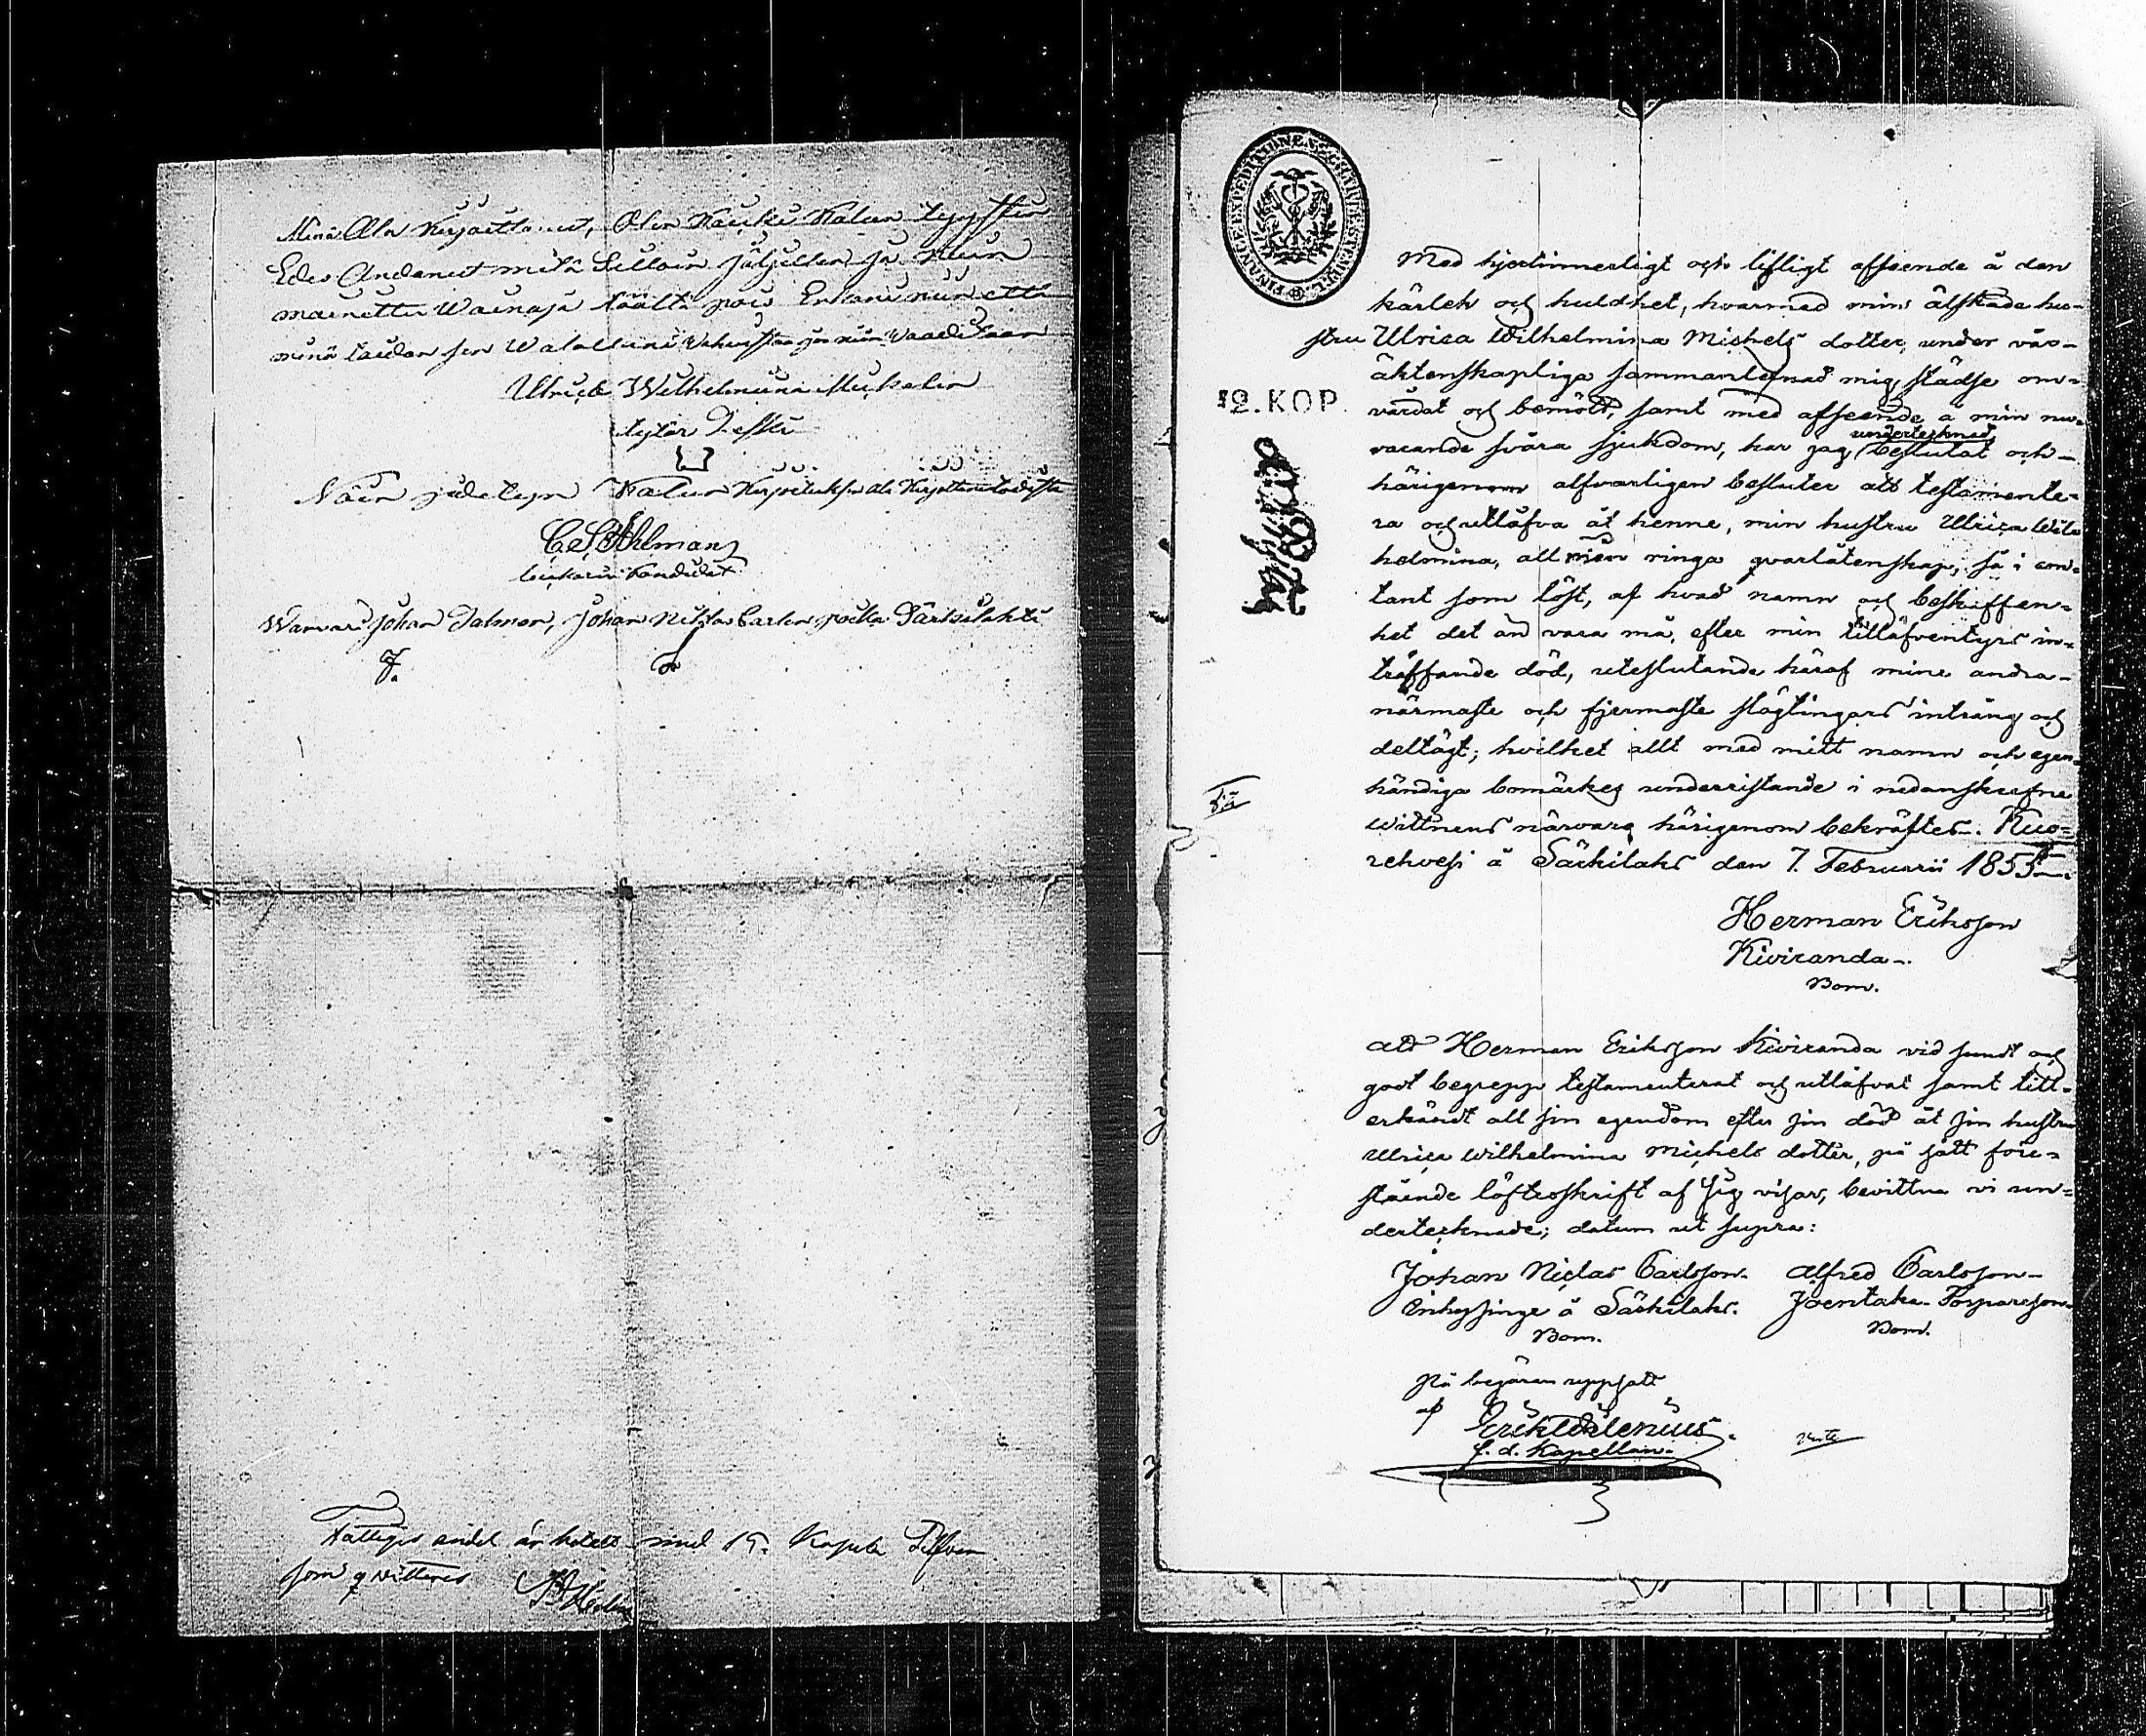 Minä Ala Kirjoittanut, Olen Kaicki Kalun
Edes Andanut mitä Silloin jäljillen ja Niin
maenettu Waenaja täältä pois niin että
minä taidan sen Walallani Wahwistaa ja niin Waadittaan
Ulrica Wilhelmina Mickelin
tytär Leski
Näin Kalun Kirjoituksen ala Kirjottanut todista
C. S. Ahlman
Lukkarin Kandidat
Wanvari Johan Salmen, Johan Niklas Carlen poika Särkilahti
Fattiges andel är betalt med 19. Kopek Silfver
som qvitteras
FINANCE EXPEDITIONENS CHARTÆ STÄMPEL
12. KOP.
Med hjertinnerligt och lifligt afseende å den
kärlek och huldhet, hvarmed min älskade hu-
stru Ulrica Wilhelmina Michels dotter, under vår-
äktenskapliga sammanlefnad mig städse om-
vårdat och bemött, samt med afseende å min nu-
undertecknad
varande svåra sjukdom, har jag beslutat och-
härigenom alfvarligen besluter att testamente-
ra och utlåfva åt henne, min hustru Ulrica Wil-
helmina, all min ringa qvarlåtenskap, så i con-
tant som löst, af hvad namn och beskaffen-
het det än vara må, efter min tilläfventyrs in-
träffande död, uteslutande häraf mine andra-
närmaste och fjermaste slägtingars intrång och
deltagt; hvilket allt med mitt namn och egen-
händiga bomärkes underristande i nedanskrefne
wittnens närvara härigenom bekräftes. Kuo-
rehvesi å Särkilaks den 7. Februarii 1855.
Herman Eriksson
Kiviranda.
Bom.
Att Herman Eriksson Kiviranda vid sundt och
godt begrepp testamenterat och utlåfvat samt till-
erkändt all sin egendom efter sin död åt sin hustru
Ulrica Wilhelmina Michels dotter, på sätt före-
stående löftesskrift af sig visar, bevittna vi un-
dertecknade; datum ut supra:
Johan Niclas Carlsson. Alfred Carlsson-
Inhysinge å Särkilaks. Joentaka Torpareson.
Bom. Bom.
På begäran uppsatt
af Erik Wilenius.
f. d. Kapellan.